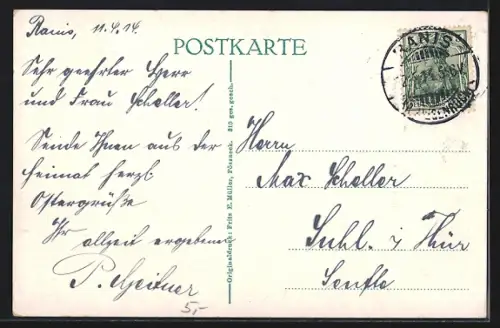 Ranis, 11.4.14.
POSTKARTE
Sehr geehrter Herr
und Frau Scheller!
Sende Ihnen aus der
Heimat herzl.
Ostergrüße
Ihr allzeit ergebener
P.
5,-
Originaldruck: Fritz E. Müller, Pössneck. 310 ges. gesch.
RANIS
Herrn
Max Scheller
Suhl i/Thür